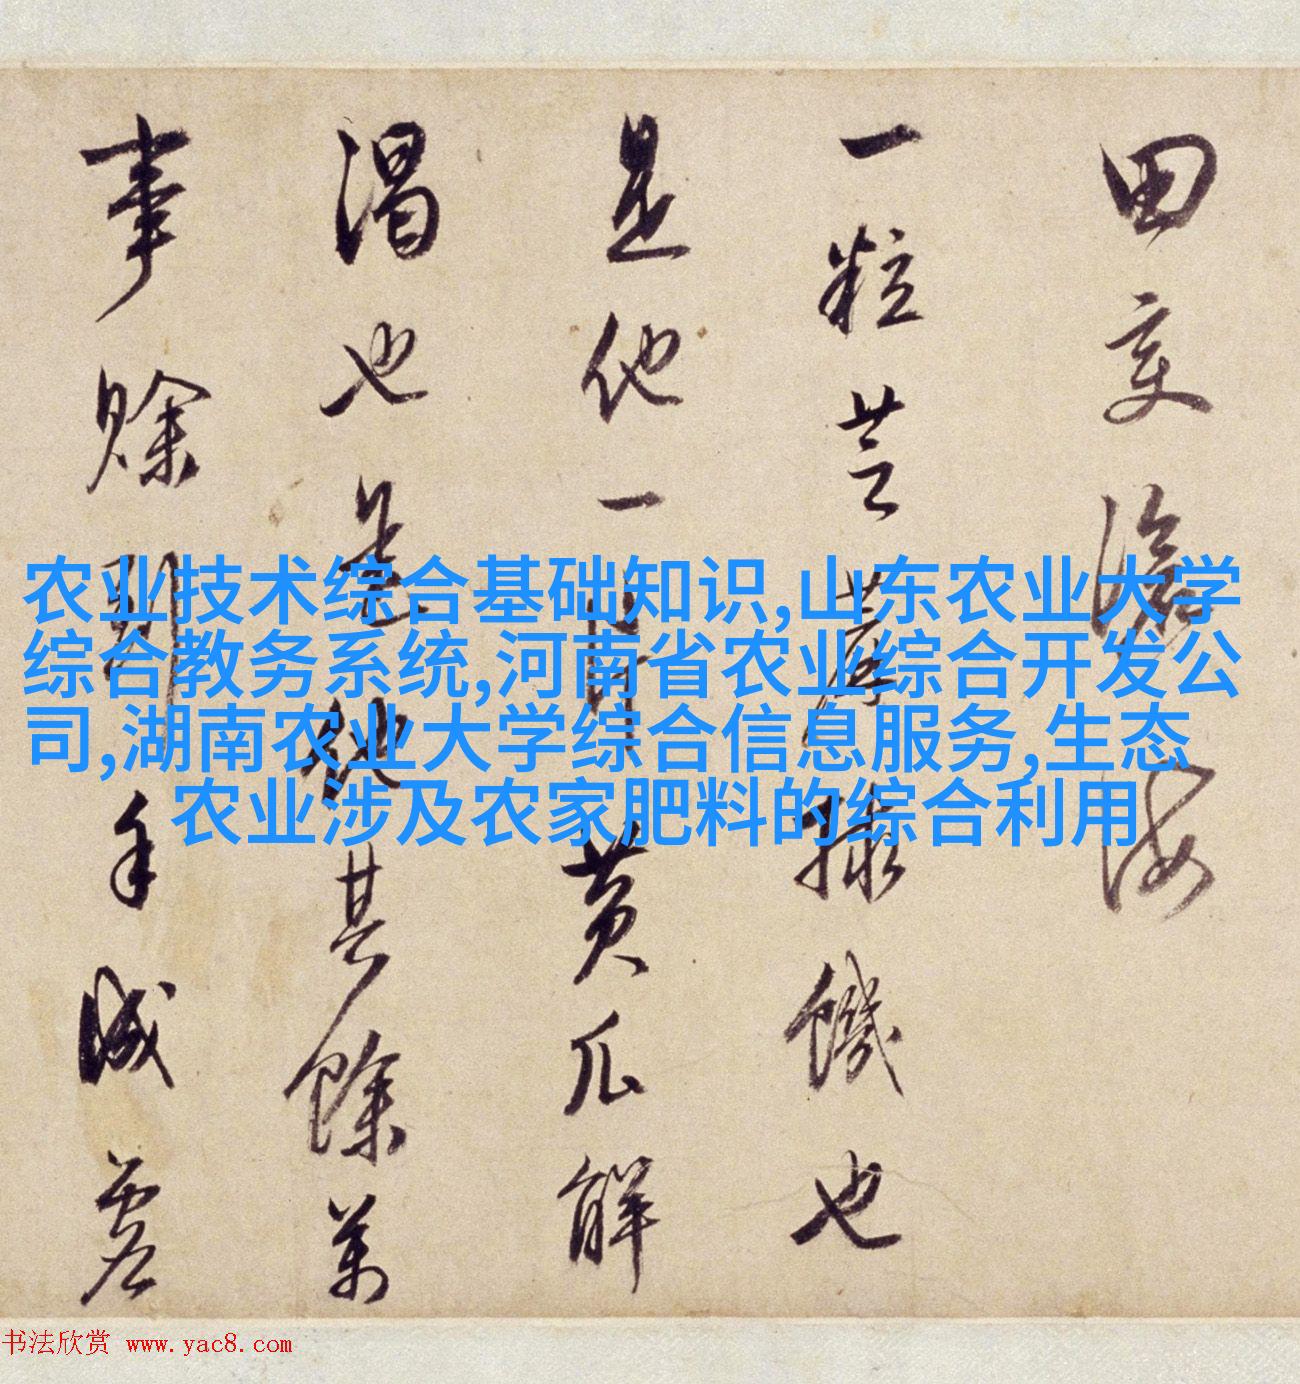 田变滄海
一粒饑也
是他一片黄瓜解
渴也是他其餘萬
事賒手
农业技术综合基础知识,山东农业大学
综合教务系统,河南省农业综合开发公
司,湖南农业大学综合信息服务,生态
农业涉及农家肥料的综合利用
书法欣赏 www.yac8.com